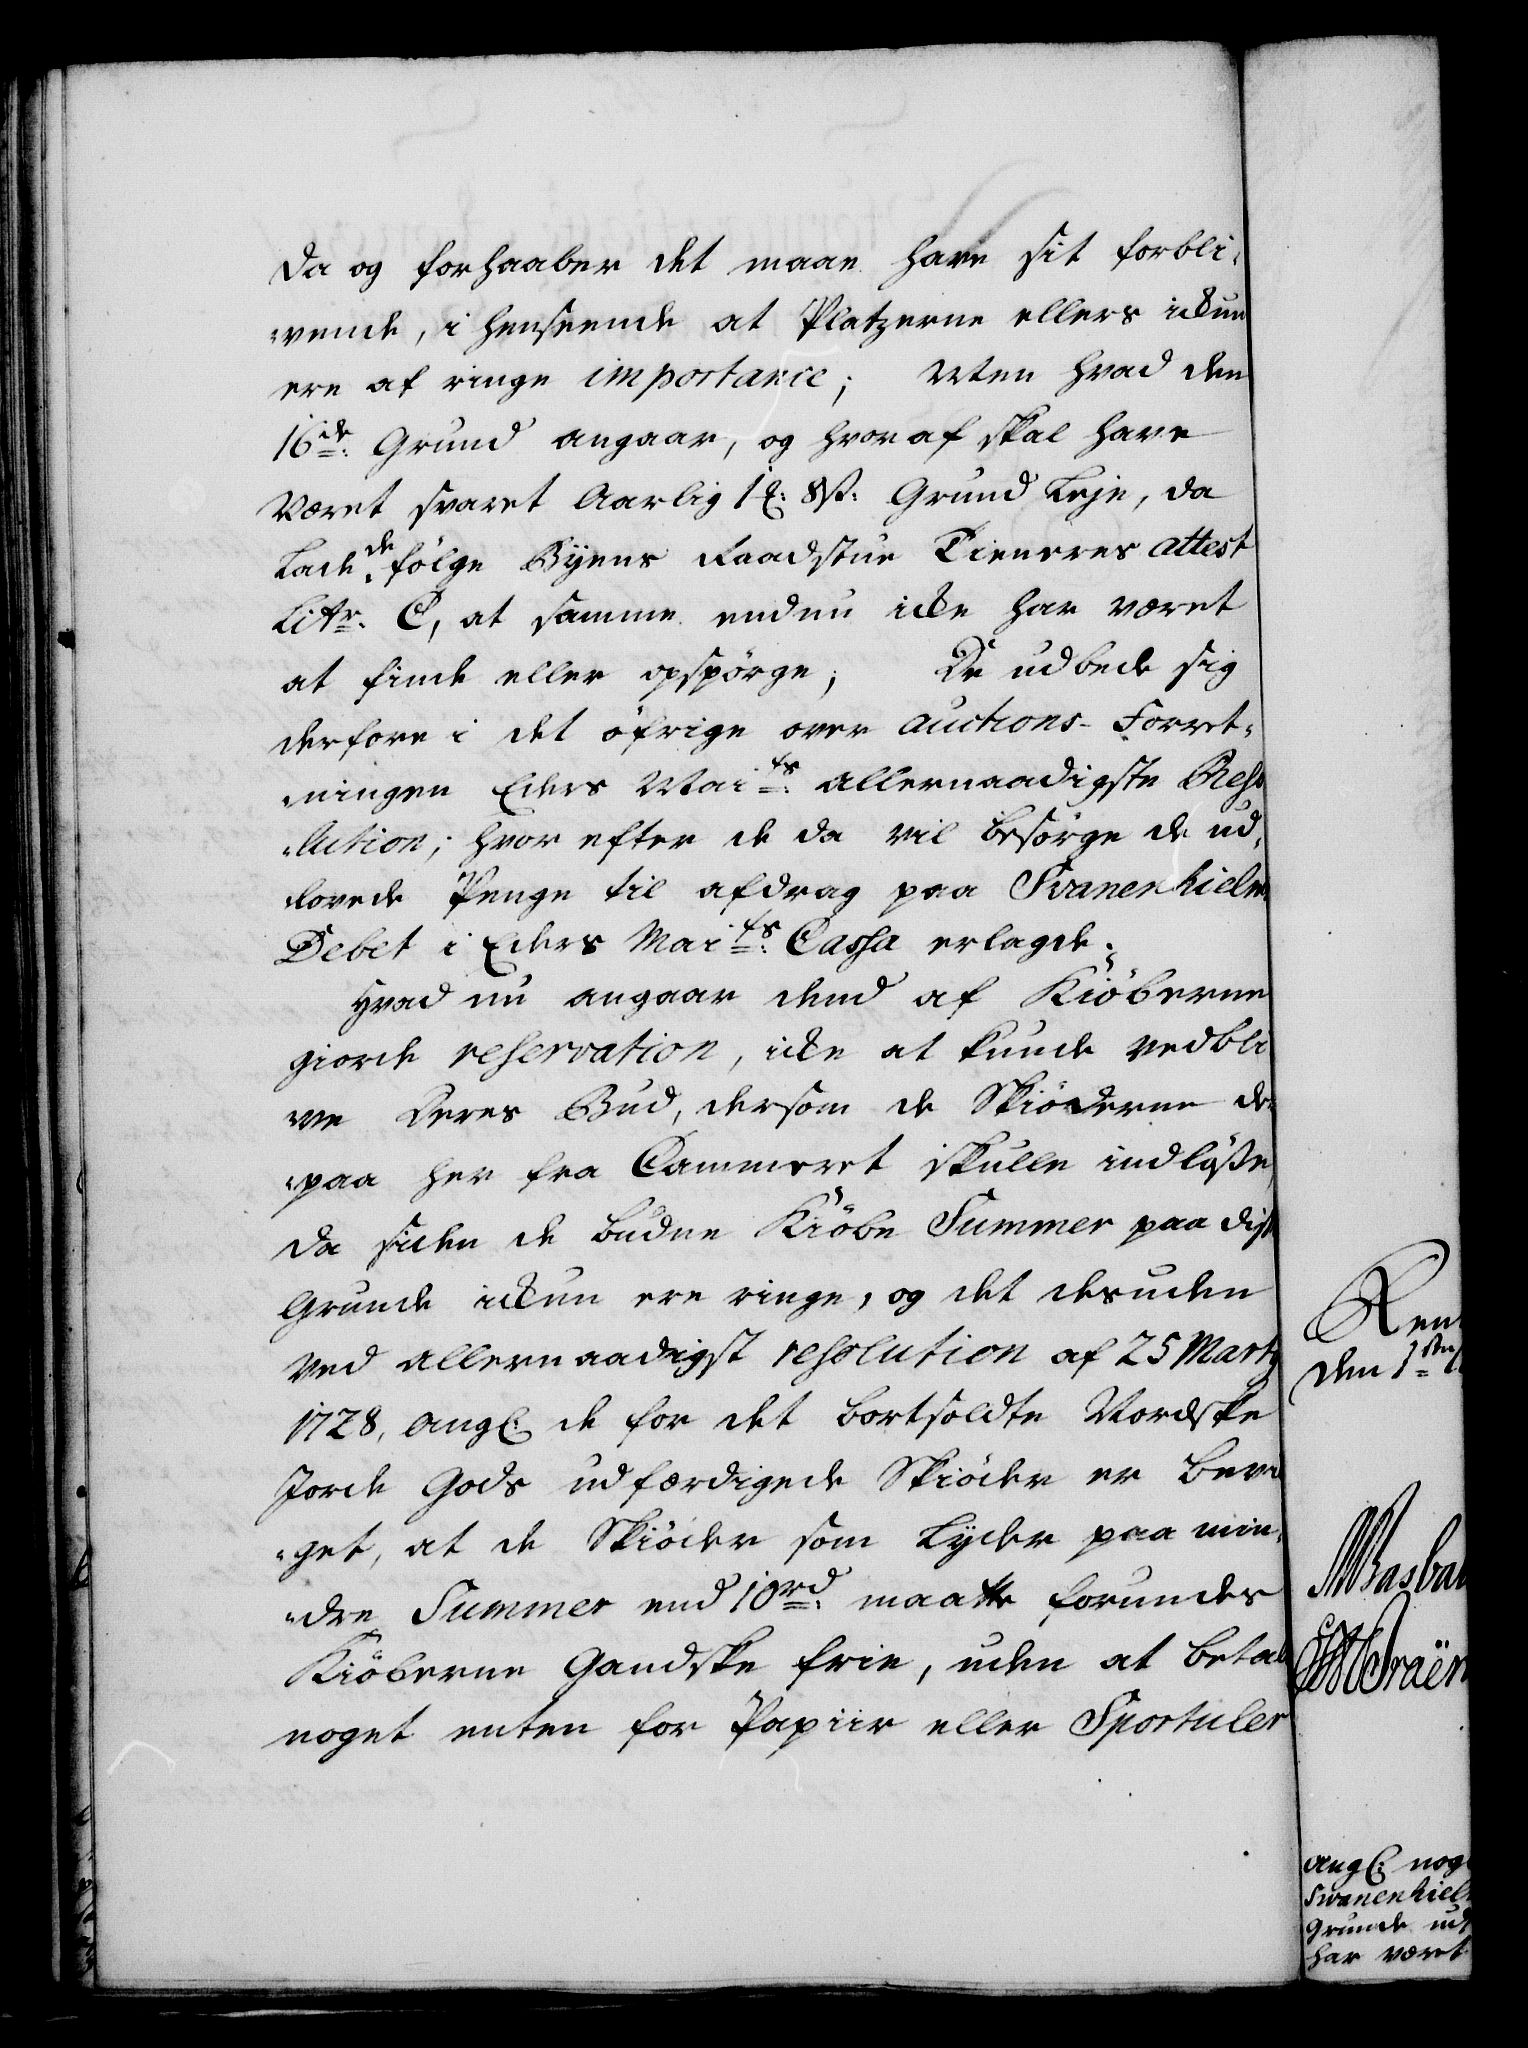 da og forhaaber det maae have sit forbli-
-vende, i henseende at Platzerne ellers ickun
ere af ringe importance; Men hvad den
16de: Grund angaar, og hvoraf skal have
været svaret Aarlig 1 8 Grund Leje, da
de følge Byens Raadstue Tieneres attest
Litr. C, at samme endnu icke har været
at finde eller opspörge; De udbede sig
derfore i det öfrige over auctions-Forret-
-ningen Eders Maits: allernaadigste Reso
-lution; hvorefter de da vil besörge de ud-
-lovede Penge til afdrag paa Svanenhielms
Debet i Eders Maits: Cassa erlagde.
Hvad nu angaar dend af Kiöberne
giorde reservation, icke at kunde vedbli
-ve deres Bud, dersom de Skiöderne der
-paa her fra Cammeret skulle indlösse,
da siden de budne Kiöbe Summer paa disse
Grunde ickun ere ringe, og det desuden
ved allernaadigst resolution af 25 Martj
1728, angl: de for det bortsoldte Nordske
Jorde Gods udfærdigede Skiöder er bevil
-get, at de Skiöder som lyder paa min-
-dre Summer end 10rd: maatte forundes
Kiöberne Gandske frie, uden at betale
noget enten for Papiir eller Sportuler
Ren
den 1ste
Angl: nog
Svanenhiel
Grunde ud
har været